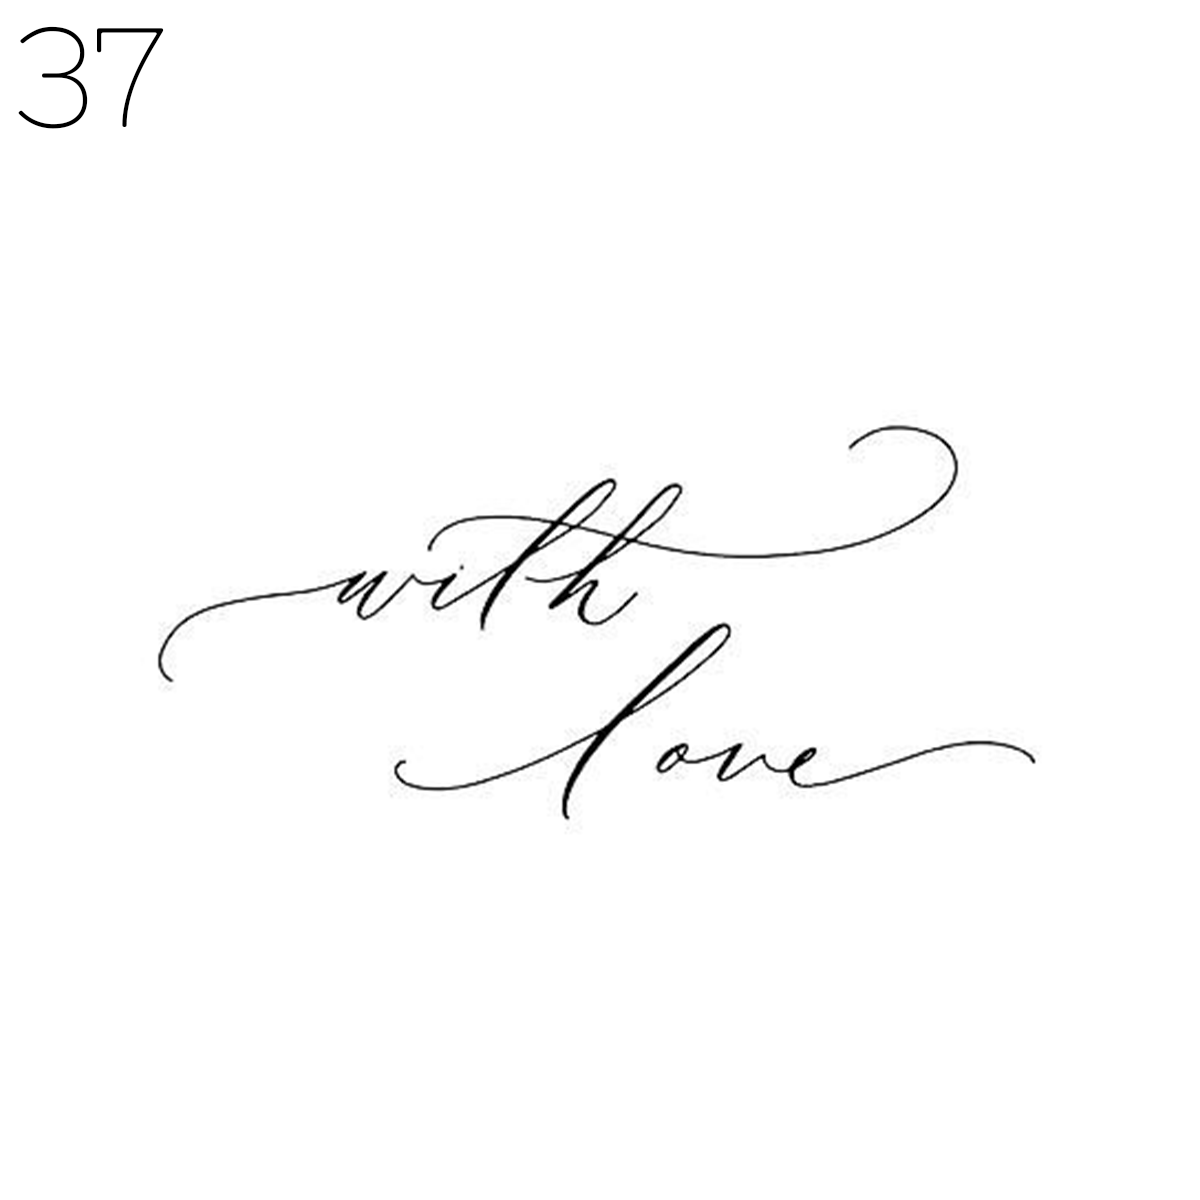 37
with
love